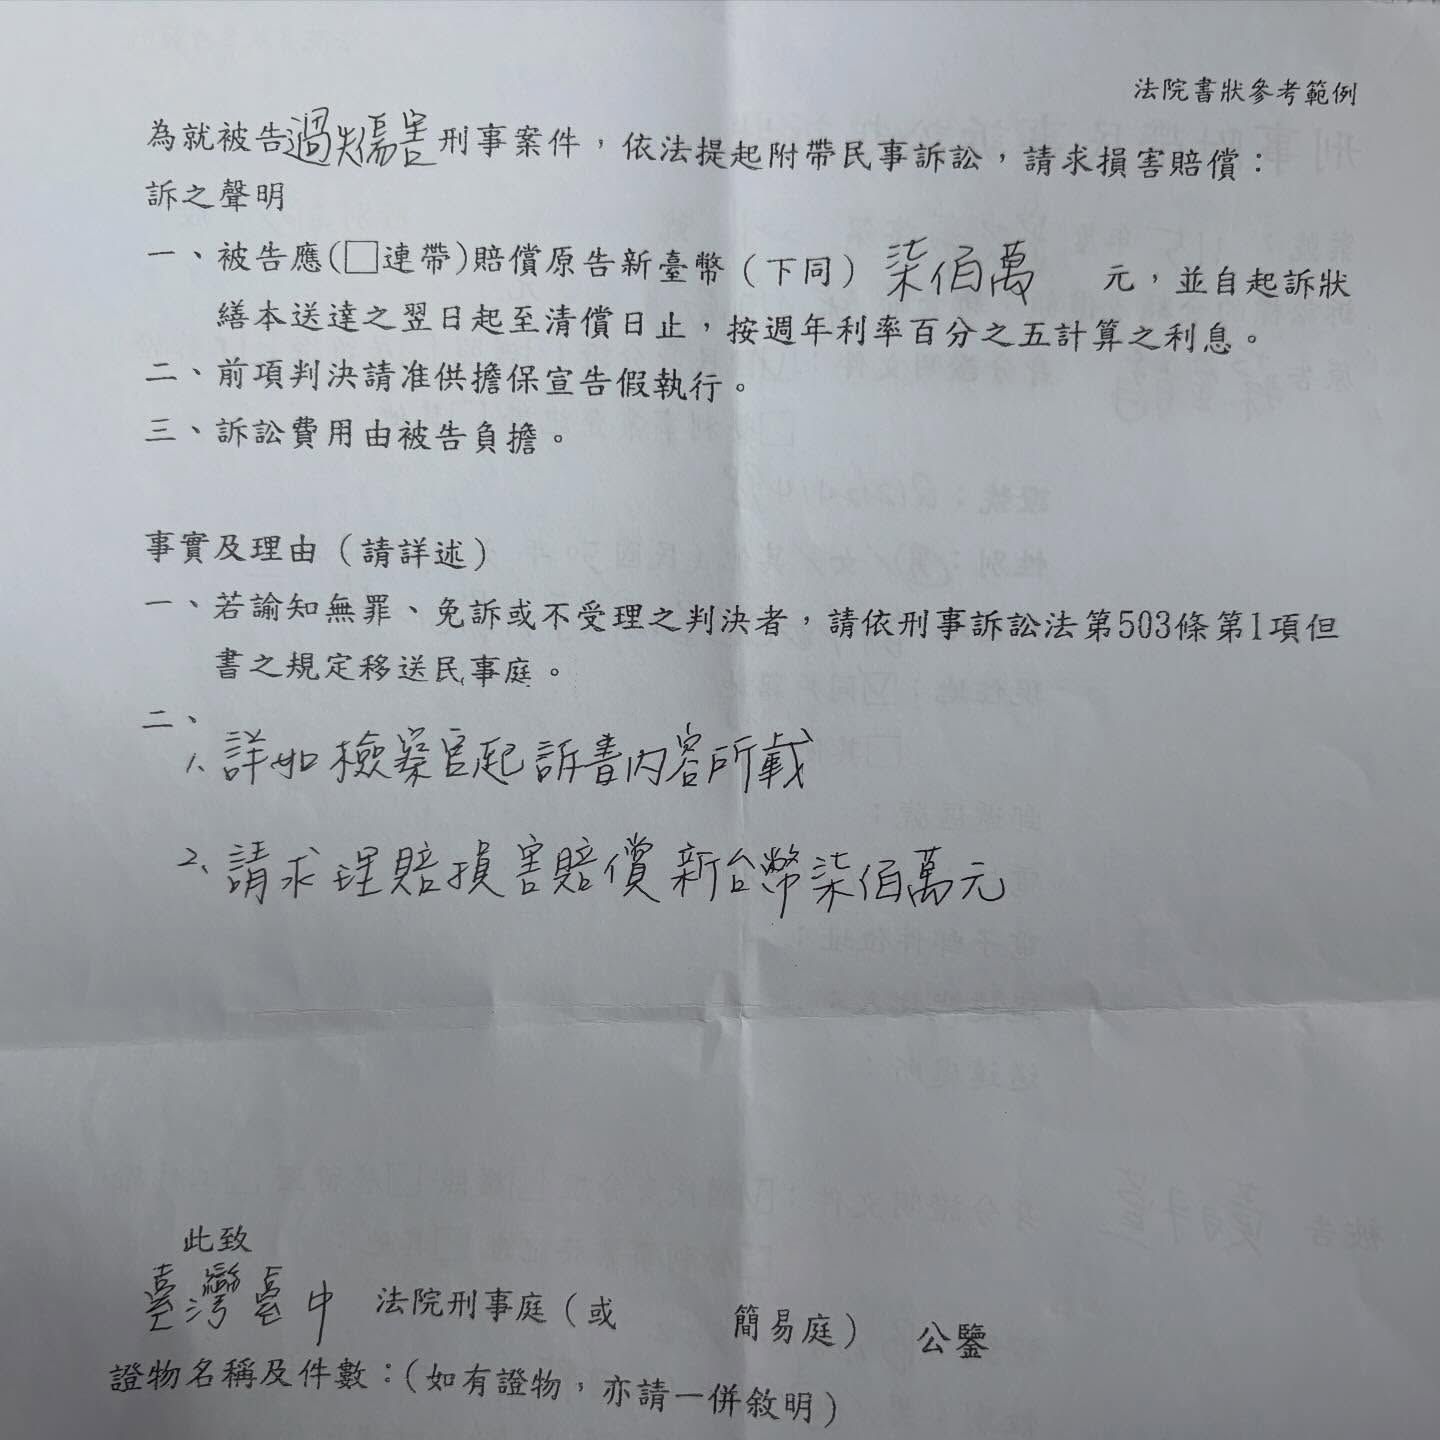 法院書狀參考範例
為就被告過失傷害刑事案件，依法提起附帶民事訴訟，請求損害賠償：
訴之聲明
一、被告應(□連帶)賠償原告新臺幣（下同）柒佰萬 元，並自起訴狀
繕本送達之翌日起至清償日止，按週年利率百分之五計算之利息。
二、前項判決請准供擔保宣告假執行。
三、訴訟費用由被告負擔。
事實及理由（請詳述）
一、若諭知無罪、免訴或不受理之判決者，請依刑事訴訟法第503條第1項但
書之規定移送民事庭。
二、
1、詳如檢察官起訴書內容所載
2、請求理賠損害賠償新台幣柒佰萬元
此致
臺灣臺中 法院刑事庭（或 簡易庭） 公鑒
證物名稱及件數：(如有證物，亦請一併敘明)